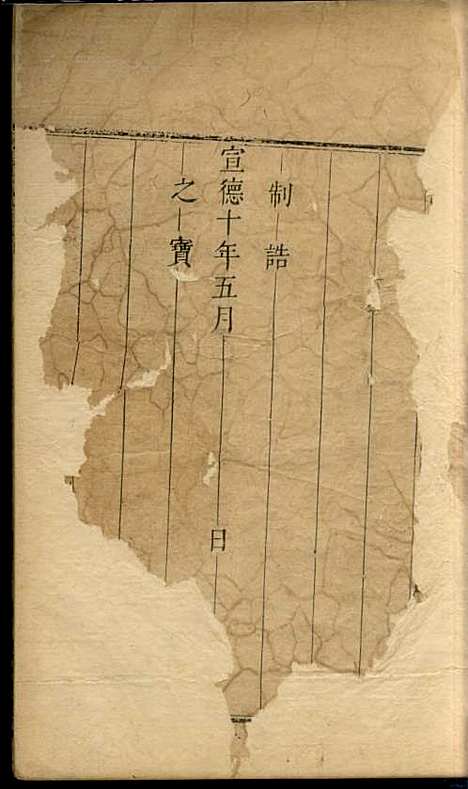 制誥
宣德十年五月　日
之寶